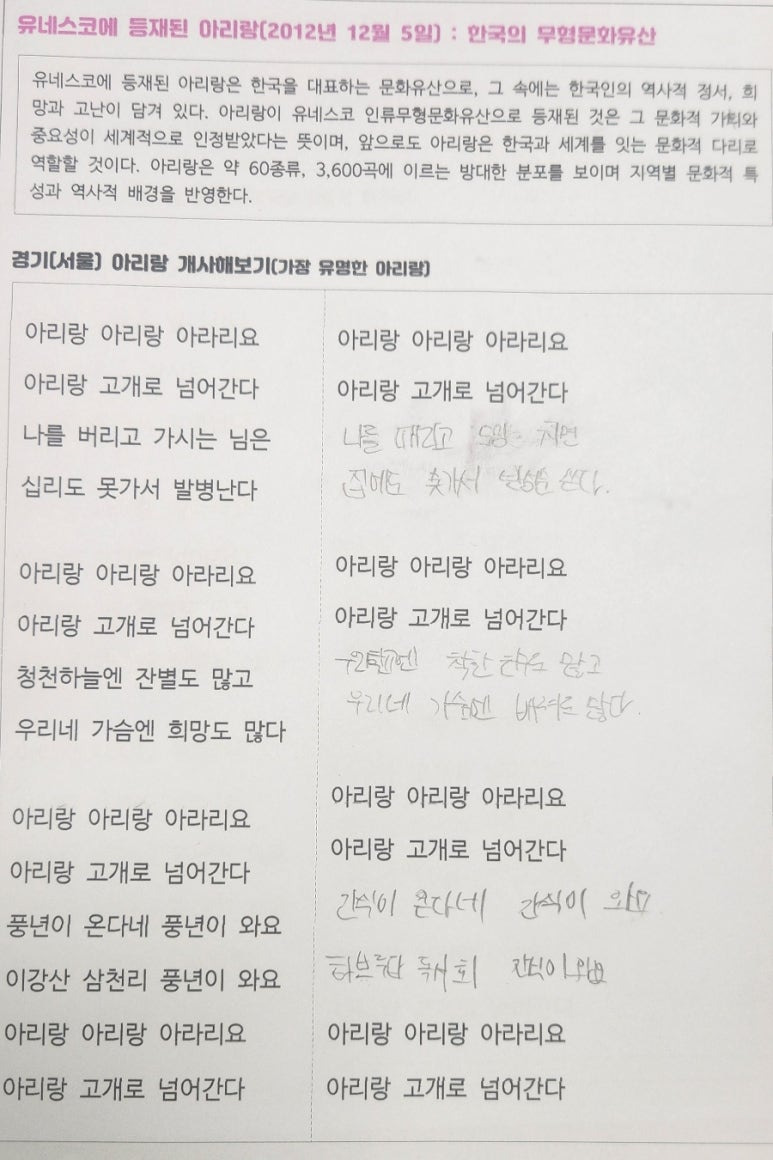 유네스코에 등재된 아리랑(2012년 12월 5일) : 한국의 무형문화유산
유네스코에 등재된 아리랑은 한국을 대표하는 문화유산으로, 그 속에는 한국인의 역사적 정서, 희
망과 고난이 담겨 있다. 아리랑이 유네스코 인류무형문화유산으로 등재된 것은 그 문화적 가치와
중요성이 세계적으로 인정받았다는 뜻이며, 앞으로도 아리랑은 한국과 세계를 잇는 문화적 다리로
역할할 것이다. 아리랑은 약 60종류, 3,600곡에 이르는 방대한 분포를 보이며 지역별 문화적 특
성과 역사적 배경을 반영한다.
경기(서울) 아리랑 개사해보기(가장 유명한 아리랑)
아리랑 아리랑 아라리요
아리랑 고개로 넘어간다
나를 버리고 가시는 님은
십리도 못가서 발병난다
아리랑 아리랑 아라리요
아리랑 고개로 넘어간다
청천하늘엔 잔별도 많고
우리네 가슴엔 희망도 많다
아리랑 아리랑 아라리요
아리랑 고개로 넘어간다
풍년이 온다네 풍년이 와요
이강산 삼천리 풍년이 와요
아리랑 아리랑 아라리요
아리랑 고개로 넘어간다
아리랑 아리랑 아라리요
아리랑 고개로 넘어간다
나를 때리고 도망 치면
집에도 못가서 쓴다.
아리랑 아리랑 아라리요
아리랑 고개로 넘어간다
착한 많고
우리네 가슴엔 많다.
아리랑 아리랑 아라리요
아리랑 고개로 넘어간다
간식이 온다네 간식이 와요
하브루타 독서회 간식이 와요
아리랑 아리랑 아라리요
아리랑 고개로 넘어간다